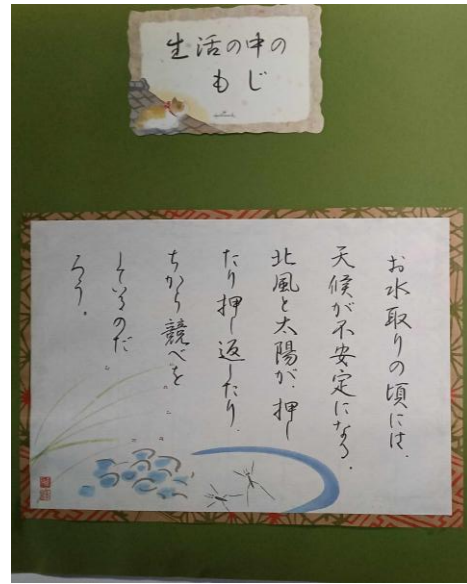 生活の中の
もじ
お水取りの頃には、
天候が不安定になる。
北風と太陽が、押し
たり押し返したり、
ちから競べを
しているのだ
ろう。